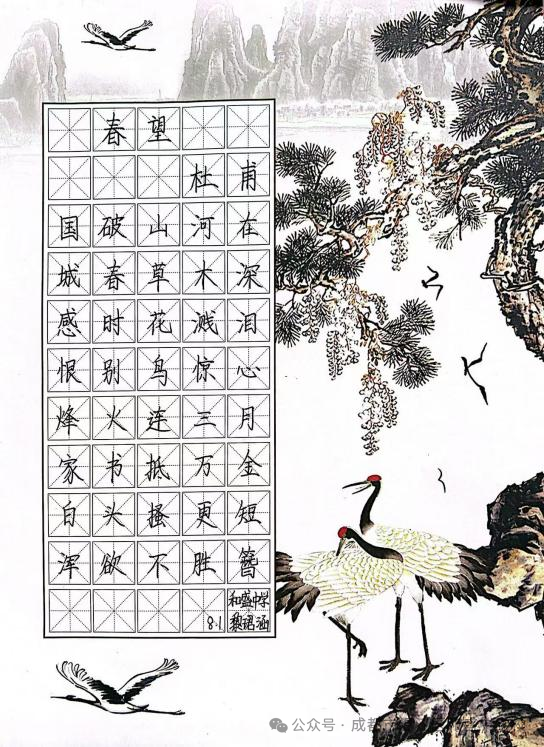 春望
杜甫
国破山河在
城春草木深
感时花溅泪
恨别鸟惊心
烽火连三月
家书抵万金
白头搔更短
浑欲不胜簪
8.1 和盛中学
黎珺涵
公众号·成都